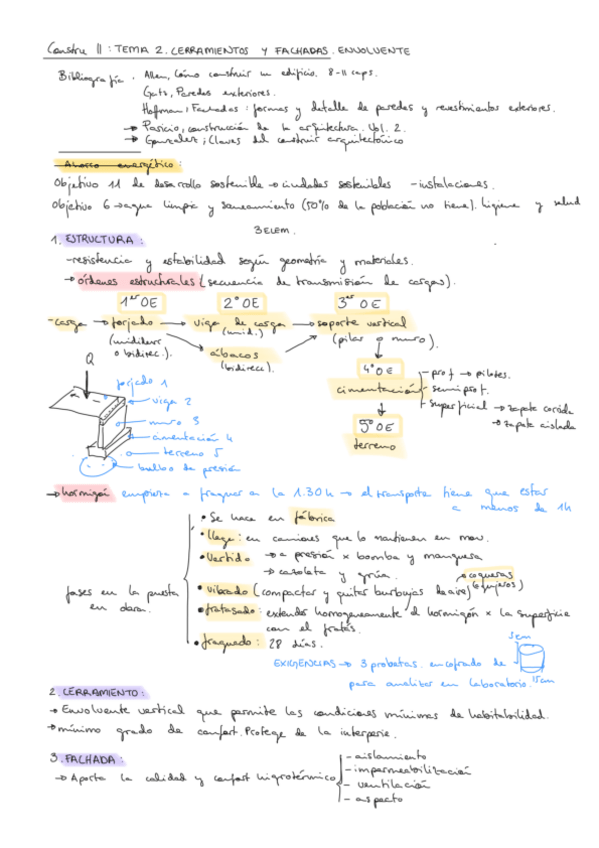 Constru II: TEMA 2. CERRAMIENTOS Y FACHADAS. ENVOLVENTE
Bibliografía. Allen, Cómo construir un edificio. 8-11 caps.
Gatz, Paredes exteriores.
Hoffman, Fachadas: formas y detalle de paredes y revestimientos exteriores.
→ Paricio, construcción de la arquitectura. Vol. 2.
→ Gonzalez; Claves del construir arquitectónico
Ahorro energético:
Objetivo 11 de desarrollo sostenible → ciudades sostenibles - instalaciones.
Objetivo 6 → agua limpia y saneamiento (50% de la población no tiene). higiene y salud
3 ELEM.
1. ESTRUCTURA:
- resistencia y estabilidad según geometría y materiales.
→ órdenes estructurales (secuencia de transmisión de cargas).
1er OE 2º OE 3er OE
- carga → forjado → viga de carga → soporte vertical
(unidirecc o bidirec.). (unid.) (pilar o muro).
ábacos
(bidirecc).
4º OE
cimentación
- prof → pilotes.
- semiprof.
- superficial → zapata corrida
→ zapata aislada
5º OE
terreno
Q
forjado 1
viga 2
muro 3
cimentación 4
terreno 5
bulbo de presión
→ hormigón empieza a fraguar en la 1.30h → el transporte tiene que estar
a menos de 1h
fases en la puesta
en obra.
• Se hace en fábrica
• llega: en camiones que lo mantienen en mov.
• Vertido → a presión x bomba y manguera
→ cazoleta y grúa.
→ coqueras
(agujeros)
• vibrado (compactar y quitar burbujas de aire)
• fratasado: extender homogeneamente el hormigón x la superficie
con el fratás.
• fraguado: 28 días.
EXIGENCIAS → 3 probetas. encofrado de
para analizar en laboratorio.
15cm
2. CERRAMIENTO:
→ Envolvente vertical que permite las condiciones mínimas de habitabilidad.
→ mínimo grado de confort. Protege de la interperie.
3. FACHADA:
→ Aporta la calidad y confort higrotérmico
- aislamiento
- impermeabilización
- ventilación
- aspecto